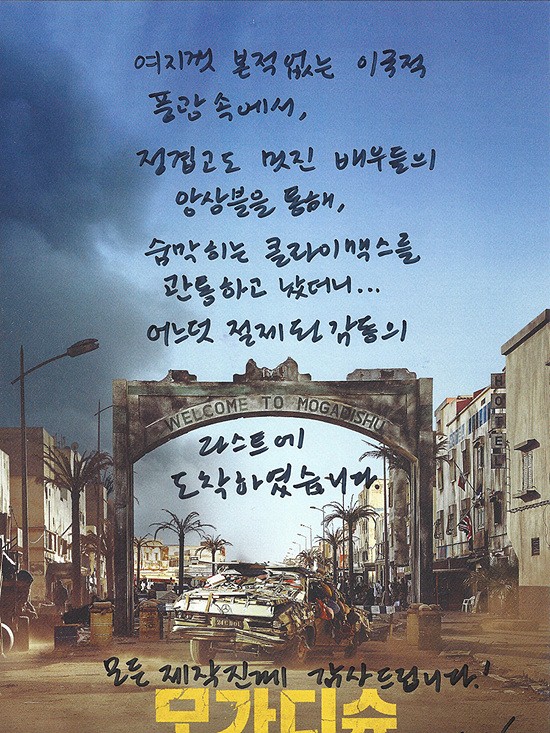 여지껏 본적없는 이국적
풍광 속에서,
정겹고도 멋진 배우들의
앙상블을 통해,
숨막히는 클라이맥스를
관통하고 났더니...
어느덧 절제된 감동의
WELCOME TO MOGADISHU
라스트에
도착하였습니다.
HOTEL
모든 제작진께 감사드립니다!
모가디슈